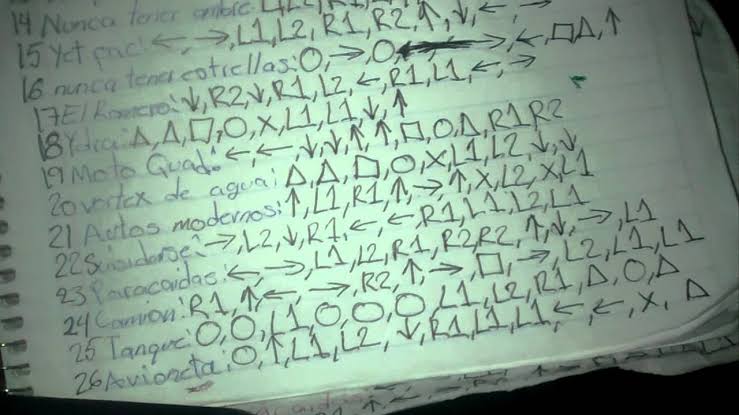 14 Nunca tener ambre: L1, L2, R1, R2, ↑, ↓, ←, →
15 Yet pac: ←, →, L1, L2, R1, R2, ↑, ↓, →, ←, □, △, ↑
16 nunca tener estrellas: ○, →, ○, ←, →
17 El Romero: ↓, R2, ↓, R1, L2, ←, R1, L1, ←, →
18 Ydra: △, △, □, ○, X, L1, L1, ↓, ↑
19 Moto Quad: ←, ←, ↓, ↓, ↑, ↑, □, ○, △, R1, R2
20 vortex de agua: △, △, □, ○, X, L1, L2, ↓, ↓
21 Autos modernos: ↑, L1, R1, ↑, →, ↑, X, L2, X, L1
22 Suisidarse: →, L2, ↓, R1, ←, ←, R1, L1, L2, L1
23 Paracaidas: ←, →, L1, L2, R1, R2, R2, ↑, ↓, →, L1
24 Camion: R1, ↑, ←, →, R2, ↑, →, □, →, L2, L1, L1
25 Tanque: ○, ○, L1, ○, ○, ○, L1, L2, R1, △, ○, △
26 Avioneta: ○, ↑, L1, L2, ↓, R1, L1, L1, ←, ←, X, △